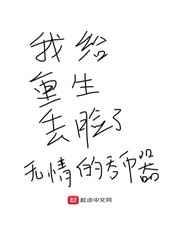 我给
重生
丢脸了
无情的秀币器
起点中文网